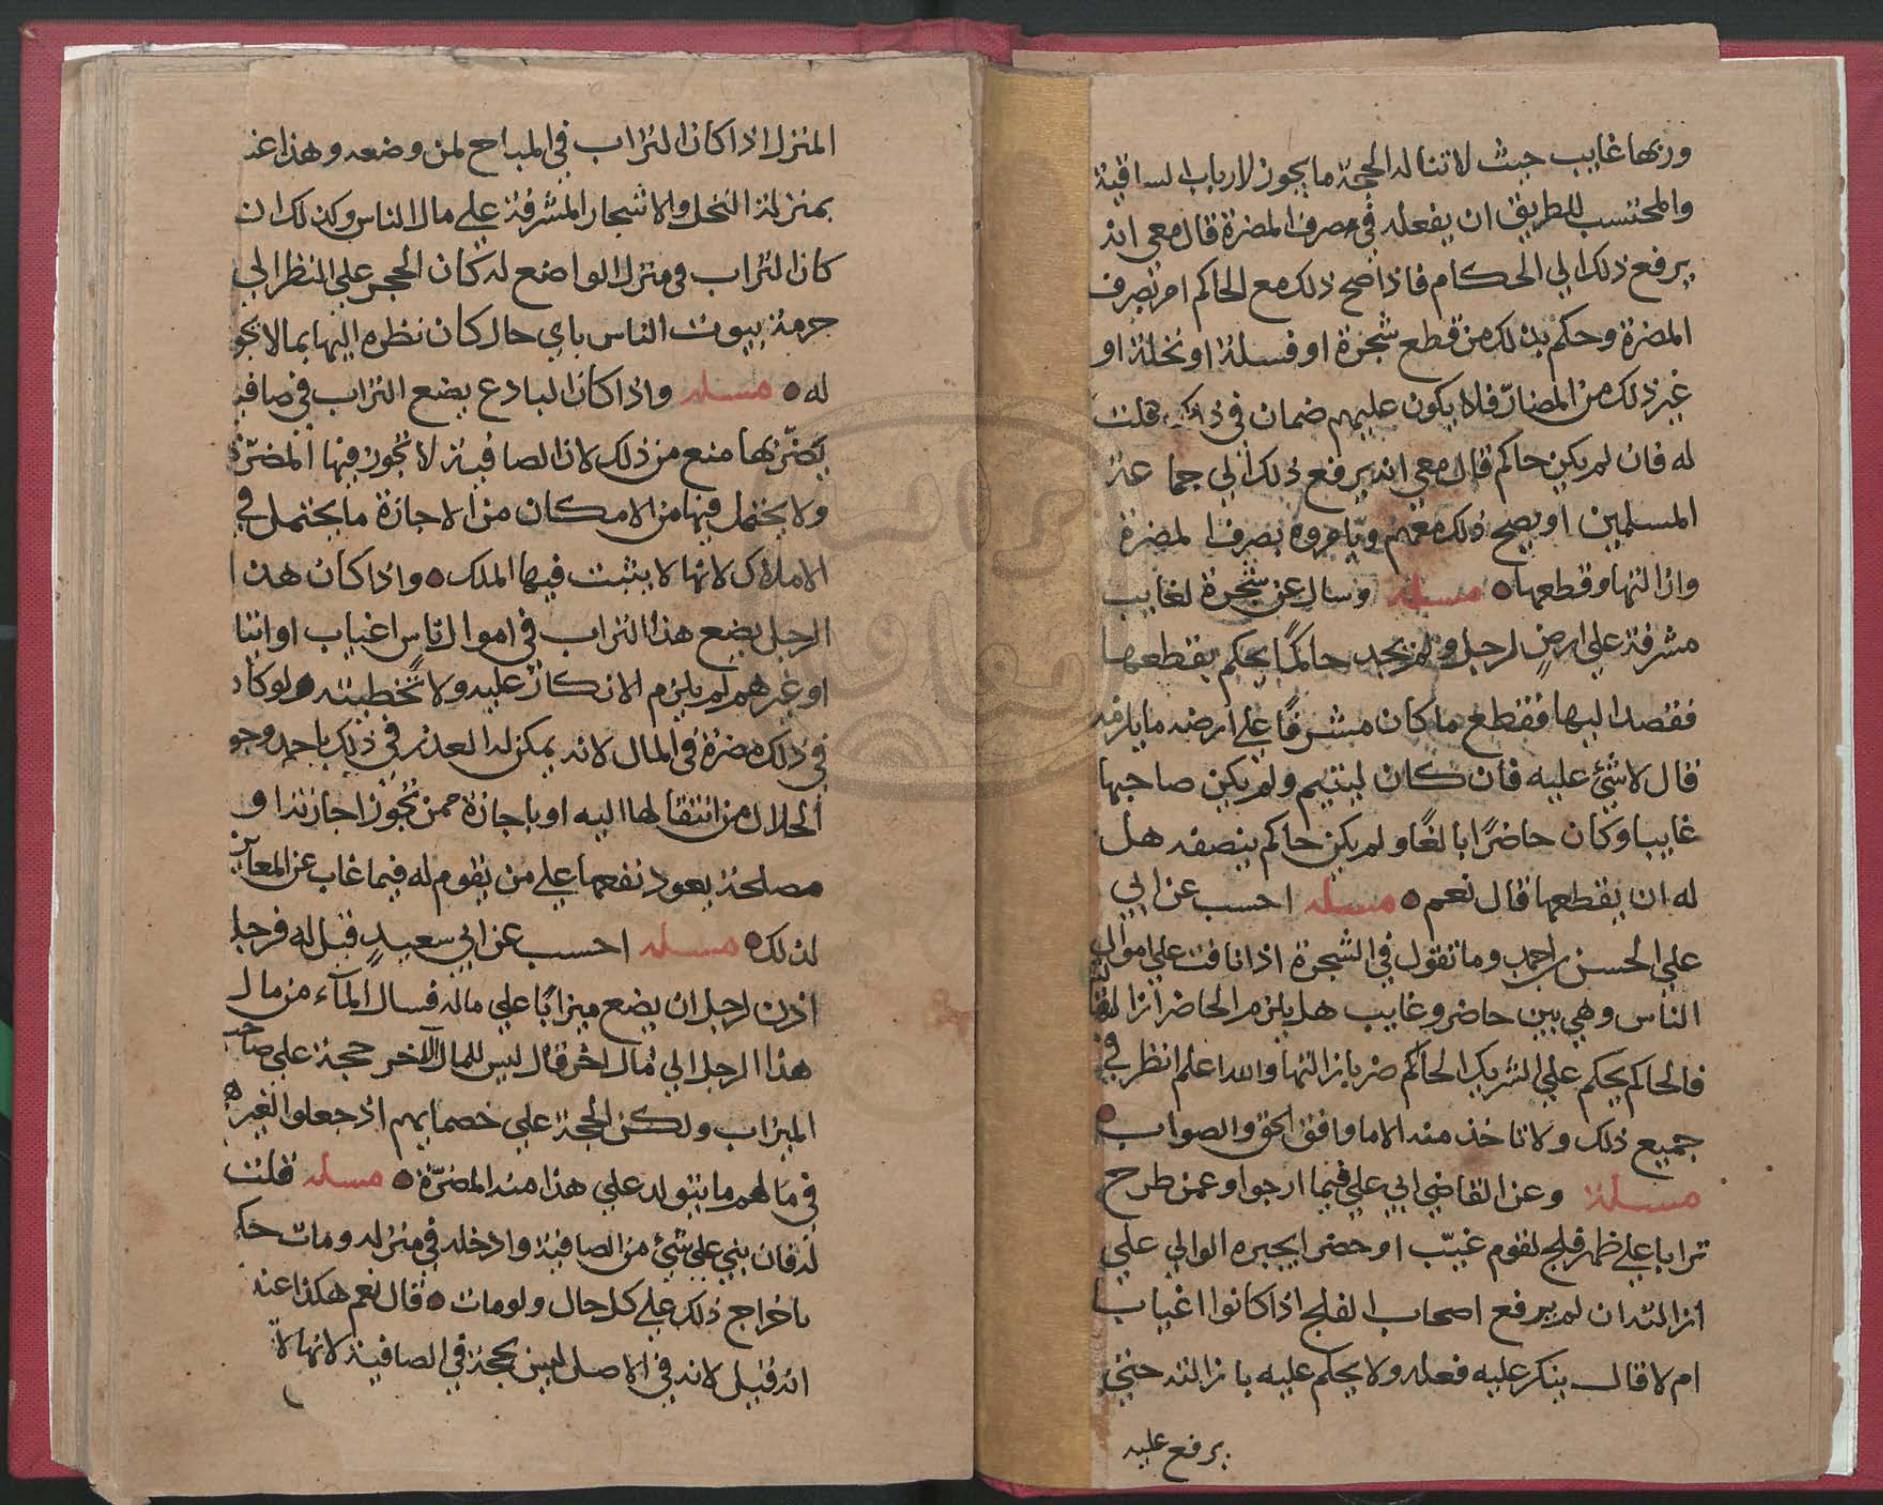 وربها غايب حيث لا تناله الحجة ما يجوز لارباب الساقية
والمحتسب للطريق ان يفعله في مصرف المضرة قال معي انه
يرفع ذلك الي الحكام فاذا صح ذلك مع الحاكم امر بصرف
المضرة وحكم بذلك من قطع شجرة او فسلة او نخلة او
غير ذلك من المضارّ فلا يكون عليهم ضمان في ذلك قلت
له فان لم يكن حاكم قال معي انه يرفع ذلك الي جماعة
المسلمين او يصح ذلك معهم ويامروه بصرف المضرة
وازالتها وقطعها ه مسئلة وسال عن شجرة لغايب
مشرفة علي ارضٍ لرجل ولم يجد حاكمًا يحكم بقطعها
فقصد اليها فقطع ما كان مشرفًا علي ارضه ما يلزمه
قال لا شئ عليه فان كان ليتيم ولم يكن صاحبها
غايبا وكان حاضرًا بالغًا ولم يكن حاكم ينصفه هل
له ان يقطعها قال نعم ه مسئله احسب عن ابي
علي الحسن بن احمد وما تقول في الشجرة اذا نافت علي اموال
الناس وهي بين حاضر وغايب هل يلزم الحاضر ازالتها
فالحاكم يحكم علي الشريك الحاكم ضر بازالتها والله اعلم انظر في
جميع ذلك ولا تاخذ منه الا ما وافق الحق والصواب ه
مسئلة وعن القاضي ابي علي فيما ارجوا وعمن طرح
ترابا علي ظهر فلج لقوم غيّب او حضر ايجبره الوالي علي
ازالته ان لم يرفع اصحاب الفلج اذا كانوا اغياب
ام لا قال ينكر عليه فعله ولا يحكم عليه بازالته حتي
يرفع عليه
المنزل اذا كان التراب في المباح لمن وضعه وهذا عند
بمنزلة النخل والاشجار المشرفة علي مال الناس وكذلك ان
كان التراب في منزل الواضع له كان الحجر علي النظر الي
حرمة بيوت الناس باي حال كان نظره اليها بما لا يجو
له ه مسئله واذا كان البادع يضع التراب في صافيه
يضرّ بها منع من ذلك لان الصافية لا تجوز فيها المضرّة
ولا يحتمل فيها من الامكان من الاجازة ما يحتمل في
الاملاك لانها لا يثبت فيها الملك ه واذا كان هذا
الرجل يضع هذا التراب في اموال ناس اغياب او ايتا
او غيرهم لم يلزم الانكار عليه ولا تخطيته ولو كان
في ذلك مضرة في المال لانه يمكن له العذر في ذلك باحد وجو
الحلال من انتقالها اليه او باجازة ممن تجوز اجازته او
مصلحة يعود نفعها علي من يقوم له فيما غاب عن المعاين
لذلك ه مسئله احسب عن ابي سعيدٍ قيل له فرجل
اذن لرجل ان يضع ميزابًا علي ماله فسال المآء من مال
هذا الرجل الي مال اخر قال ليس للمال الآخر حجة علي صاحب
الميزاب ولكن الحجة علي خصمايهم اذ جعلوا لغيره
في مالهم ما يتولد علي هذا منه المضرّة ه مسئله قلت
له فان بني علي شئ من الصافية وادخله في منزله ومات حكم
باخراج ذلك علي كل حال ولو مات ه قال نعم هكذا عند
انه قيل لانه في الاصل ليس بحجة في الصافية لانها لا